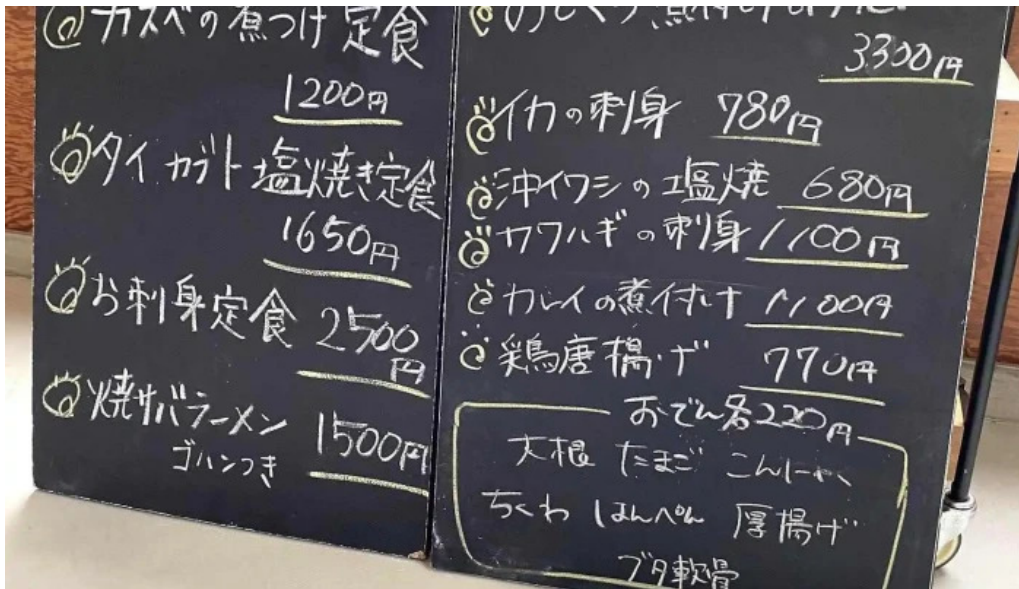 カスベの煮つけ定食
1200円
タイカブト塩焼き定食
1650円
お刺身定食 2500
円
焼サバラーメン
ゴハンつき 1500円
3300円
イカの刺身 780円
沖イワシの塩焼 680円
カワハギの刺身 1100円
カレイの煮付け 1100円
鶏唐揚げ 770円
おでん各220円
大根 たまご こんにゃく
ちくわ はんぺん 厚揚げ
ブタ軟骨